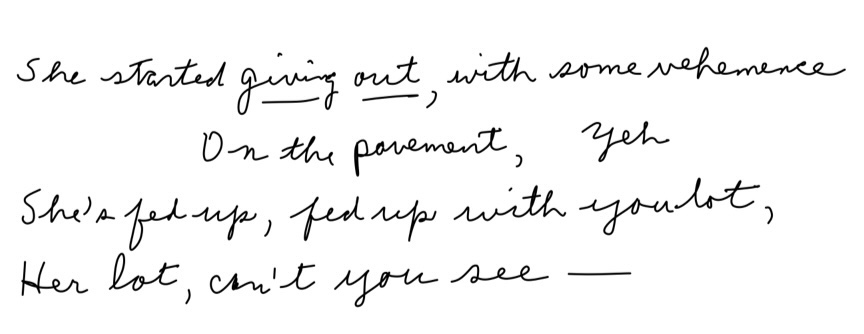 She started giving out, with some vehemence
On the pavement, Yeh
She's fed up, fed up with you lot,
Her lot, can't you see —